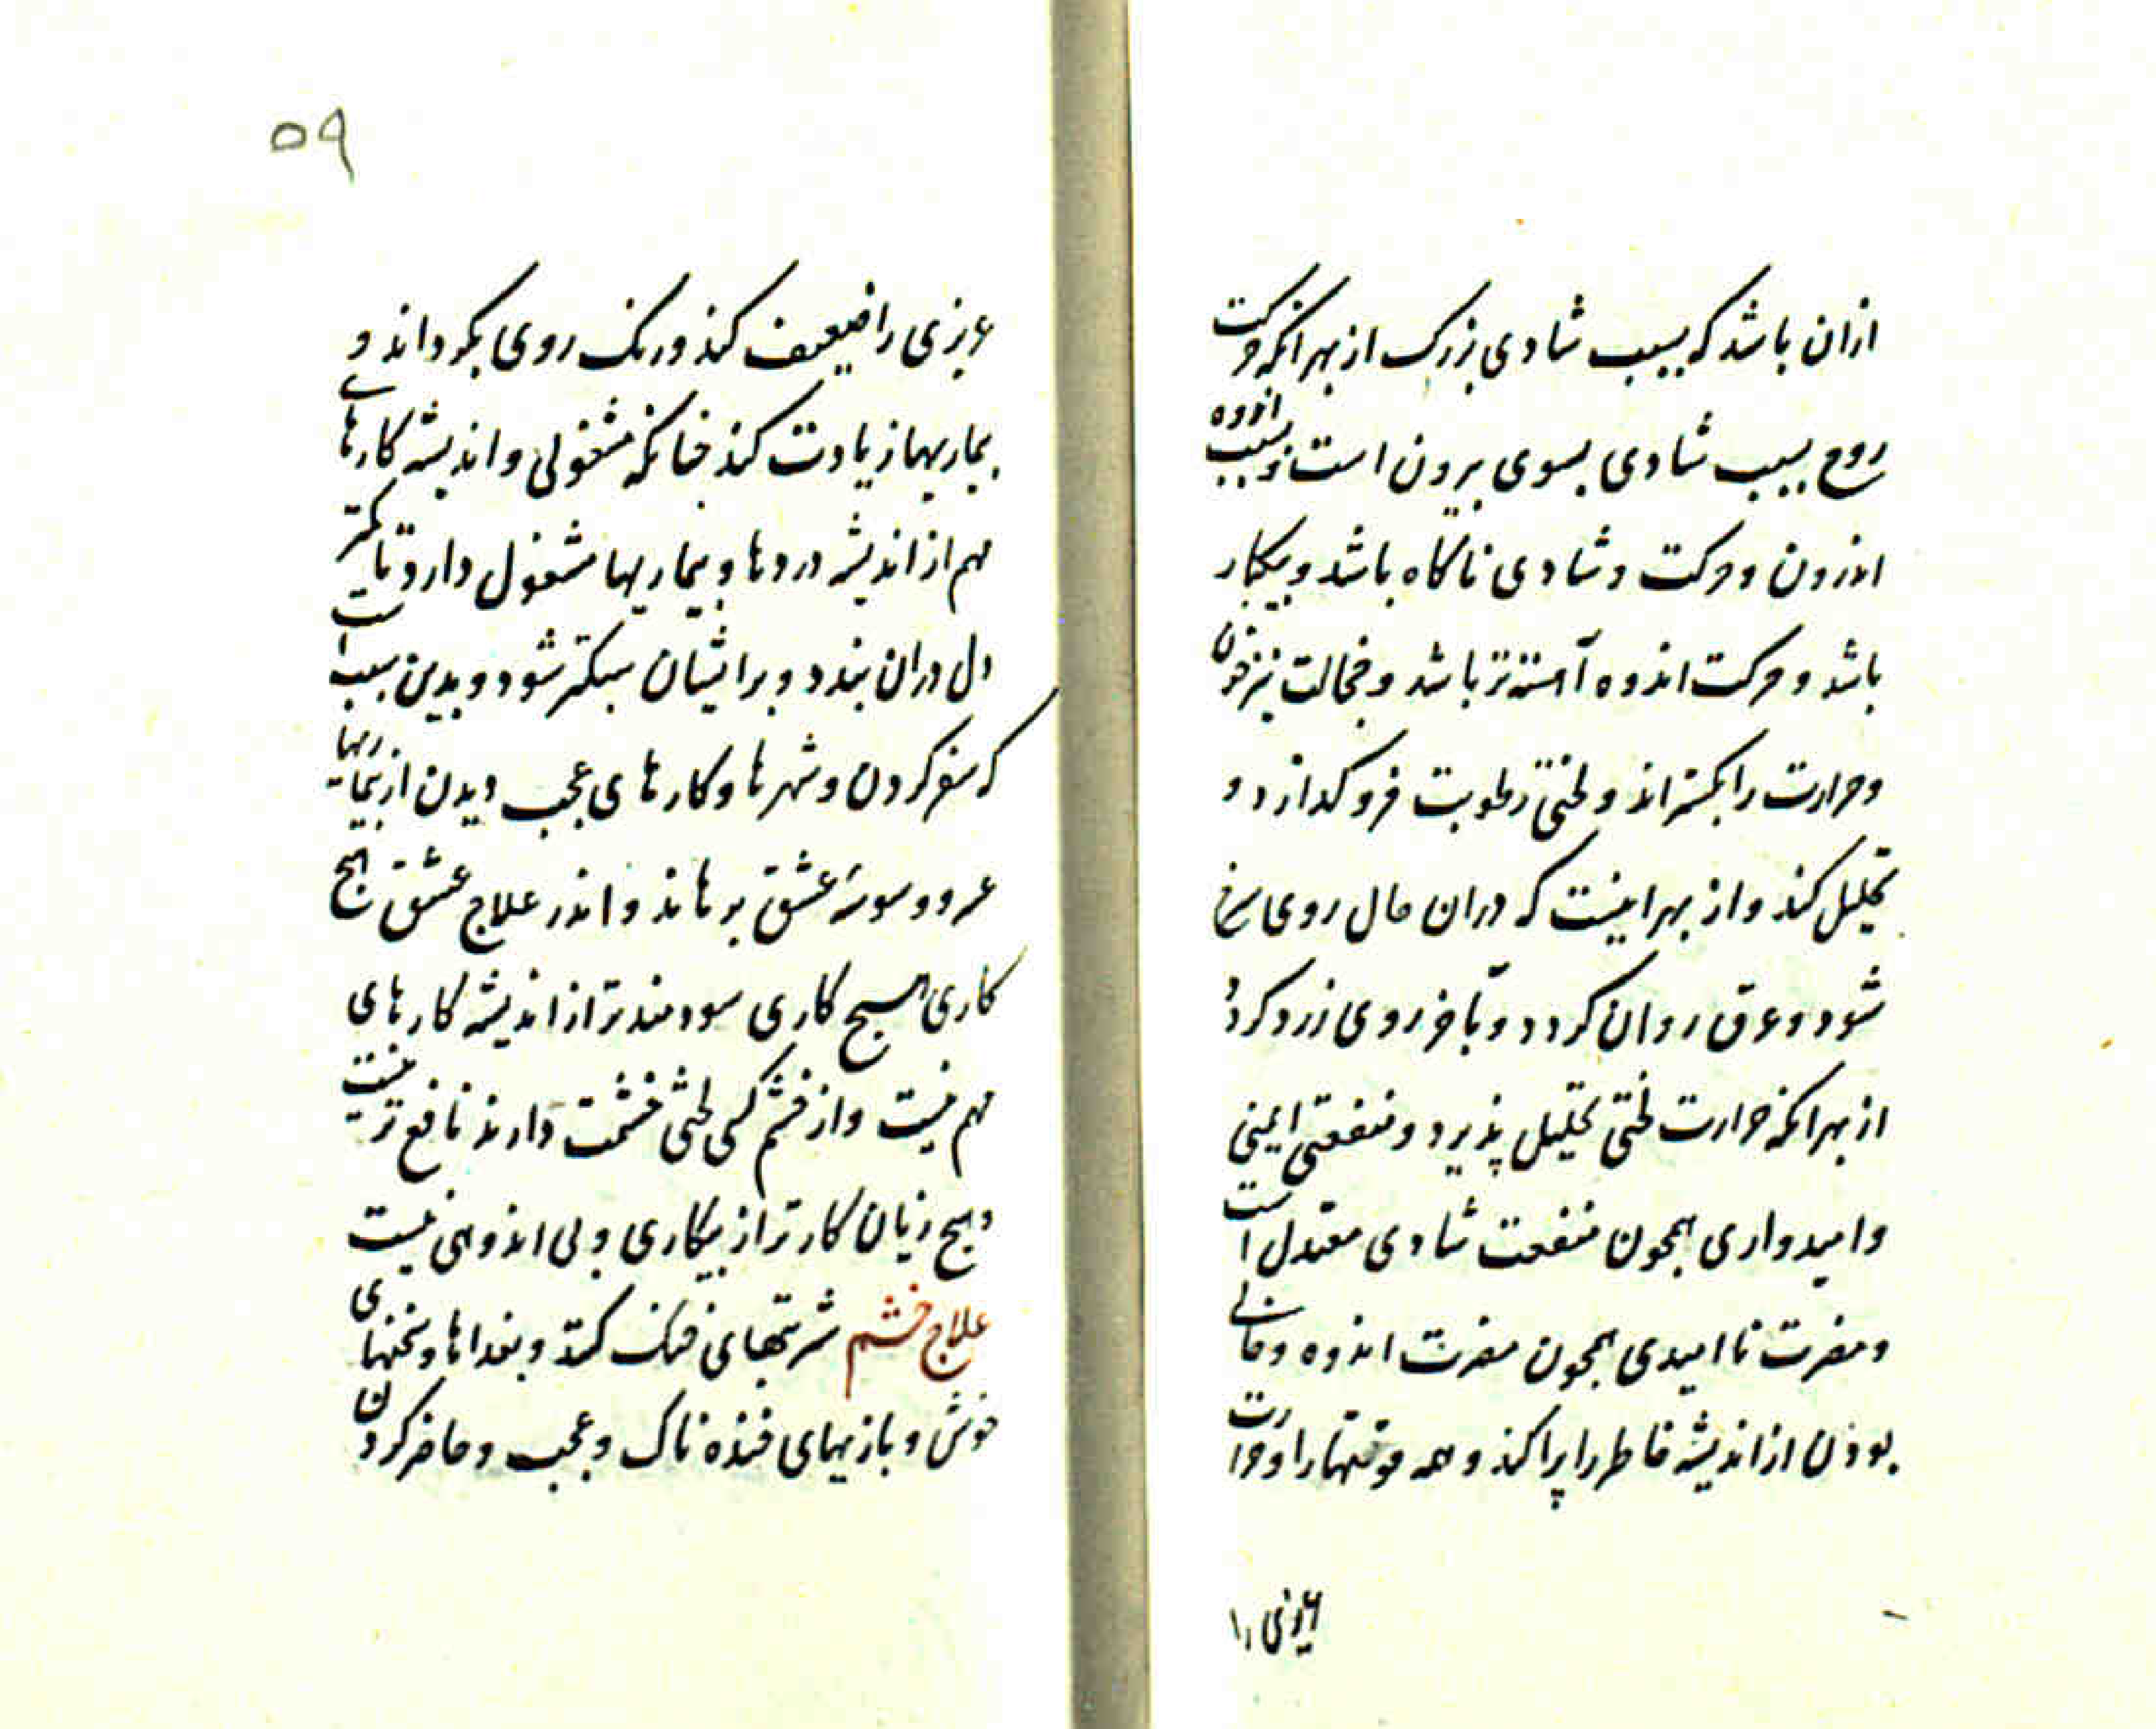 ازان باشد که بسبب شادی بزرک از بهر انکه حرکت
روح بسبب شادی بسوی بیرون است و بسبب اندوه
اندرون و حرکت و شادی ناکاه باشد و بیکبار
باشد و حرکت اندوه آهسته تر باشد و خجالت نیز خون
و حرارت را بکستراند و لختی رطوبت فرو کدازد و
تحلیل کند و از بهر اینست که دران حال روی سرخ
شود و عرق روان کردد و بآخر روی زرد کردد
از بهر انکه حرارت لختی تحلیل پذیرد و منفعتی ایمنی
و امیدواری همچون منفعت شادی معتدل است
و مضرت ناامیدی همچون مضرت اندوه و خالی
بودن از اندیشه خاطر را پراکند و همه قوتهارا و حرارت
غریزی را
۵۹
عریزی را ضعیف کند و رنک روی بکرداند و
بیماریها زیادت کند چنانکه مشغولی و اندیشه کارهای
مهم از اندیشه دردها و بیماریها مشغول دارد تا کمتر
دل دران بندد و برایشان سبکتر شود و بدین سبب است
که سفر کردن و شهرها و کارهای عجب دیدن از بیماریها
عسر و وسوسهٔ عشق برهاند و اندر علاج عشق هیچ
کاری هیچ کاری سودمند تر از اندیشه کارهای
مهم نیست و از خشم کسی حشمت دارند نافع تر نیست
و هیچ زیان کارتر از بیکاری و بی اندوهی نیست
علاج خشم شربتهای خنک کند و بغداها و سخنهای
خوش و بازیهای خنده ناک و عجب و حاضر کردن